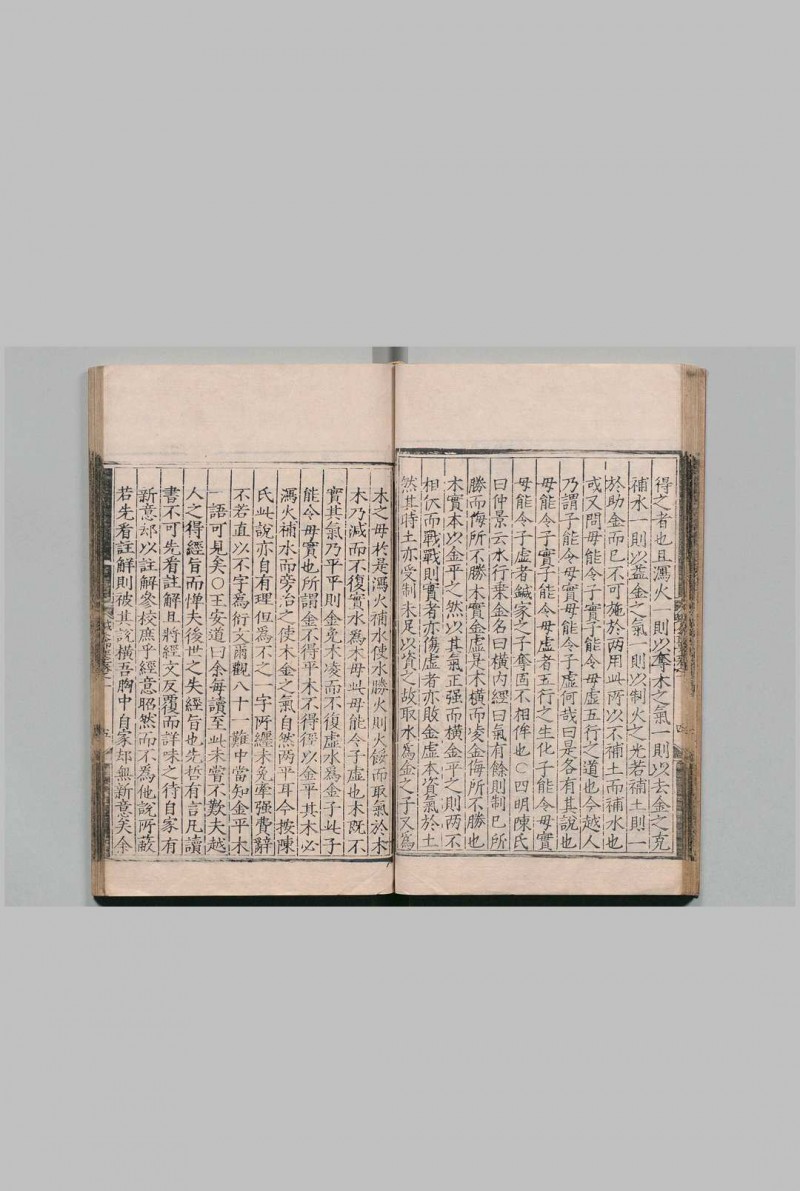 得之者也且瀉火一則以奪木之氣一則以去金之克
補水一則以益金之氣一則以制火之光若補土則一
於助金而已不可施於两用此所以不補土而補水也
或又問母能令子實子能令母虛五行之道也今越人
乃謂子能令母實母能令子虛何哉曰是各有其說也
母能令子實子能令母虛者五行之生化子能令母實
母能令子虛者鍼家之子奪固不相侔也○四明陳氏
曰仲景云水行乗金名曰横内經曰氣有餘則制己所
勝而侮所不勝木實金虛是木横而凌金侮所不勝也
木實本以金平之然以其氣正强而横金平之則两不
相伏而戰戰則實者亦傷虛者亦敗金虛本資氣於土
然其時土亦受制未足以資之故取水為金之子又為
木之母於是瀉火補水使水勝火則火餒而取氣於木
木乃減而不復實水為木母此母能令子虛也木既不
實其氣乃平平則金免木凌而不復虛水為金子此子
能令母實也所謂金不得平木不得徑以金平其木必
瀉火補水而旁治之使木金之氣自然两平耳今按陳
氏此說亦自有理但為不之一字所纏未免牽强費辭
不若直以不字為衍文爾觀八十一難中當知金平木
一語可見矣○王安道曰余每讀至此未嘗不歎夫越
人之得經旨而悼夫後世之失經旨也先哲有言凡讀
書不可先看註解且將經文反覆而詳味之待自家有
新意却以註解參校庶乎經意昭然而不為他說所蔽
若先看註解則被其說横吾胸中自家却無新意矣余
四
五